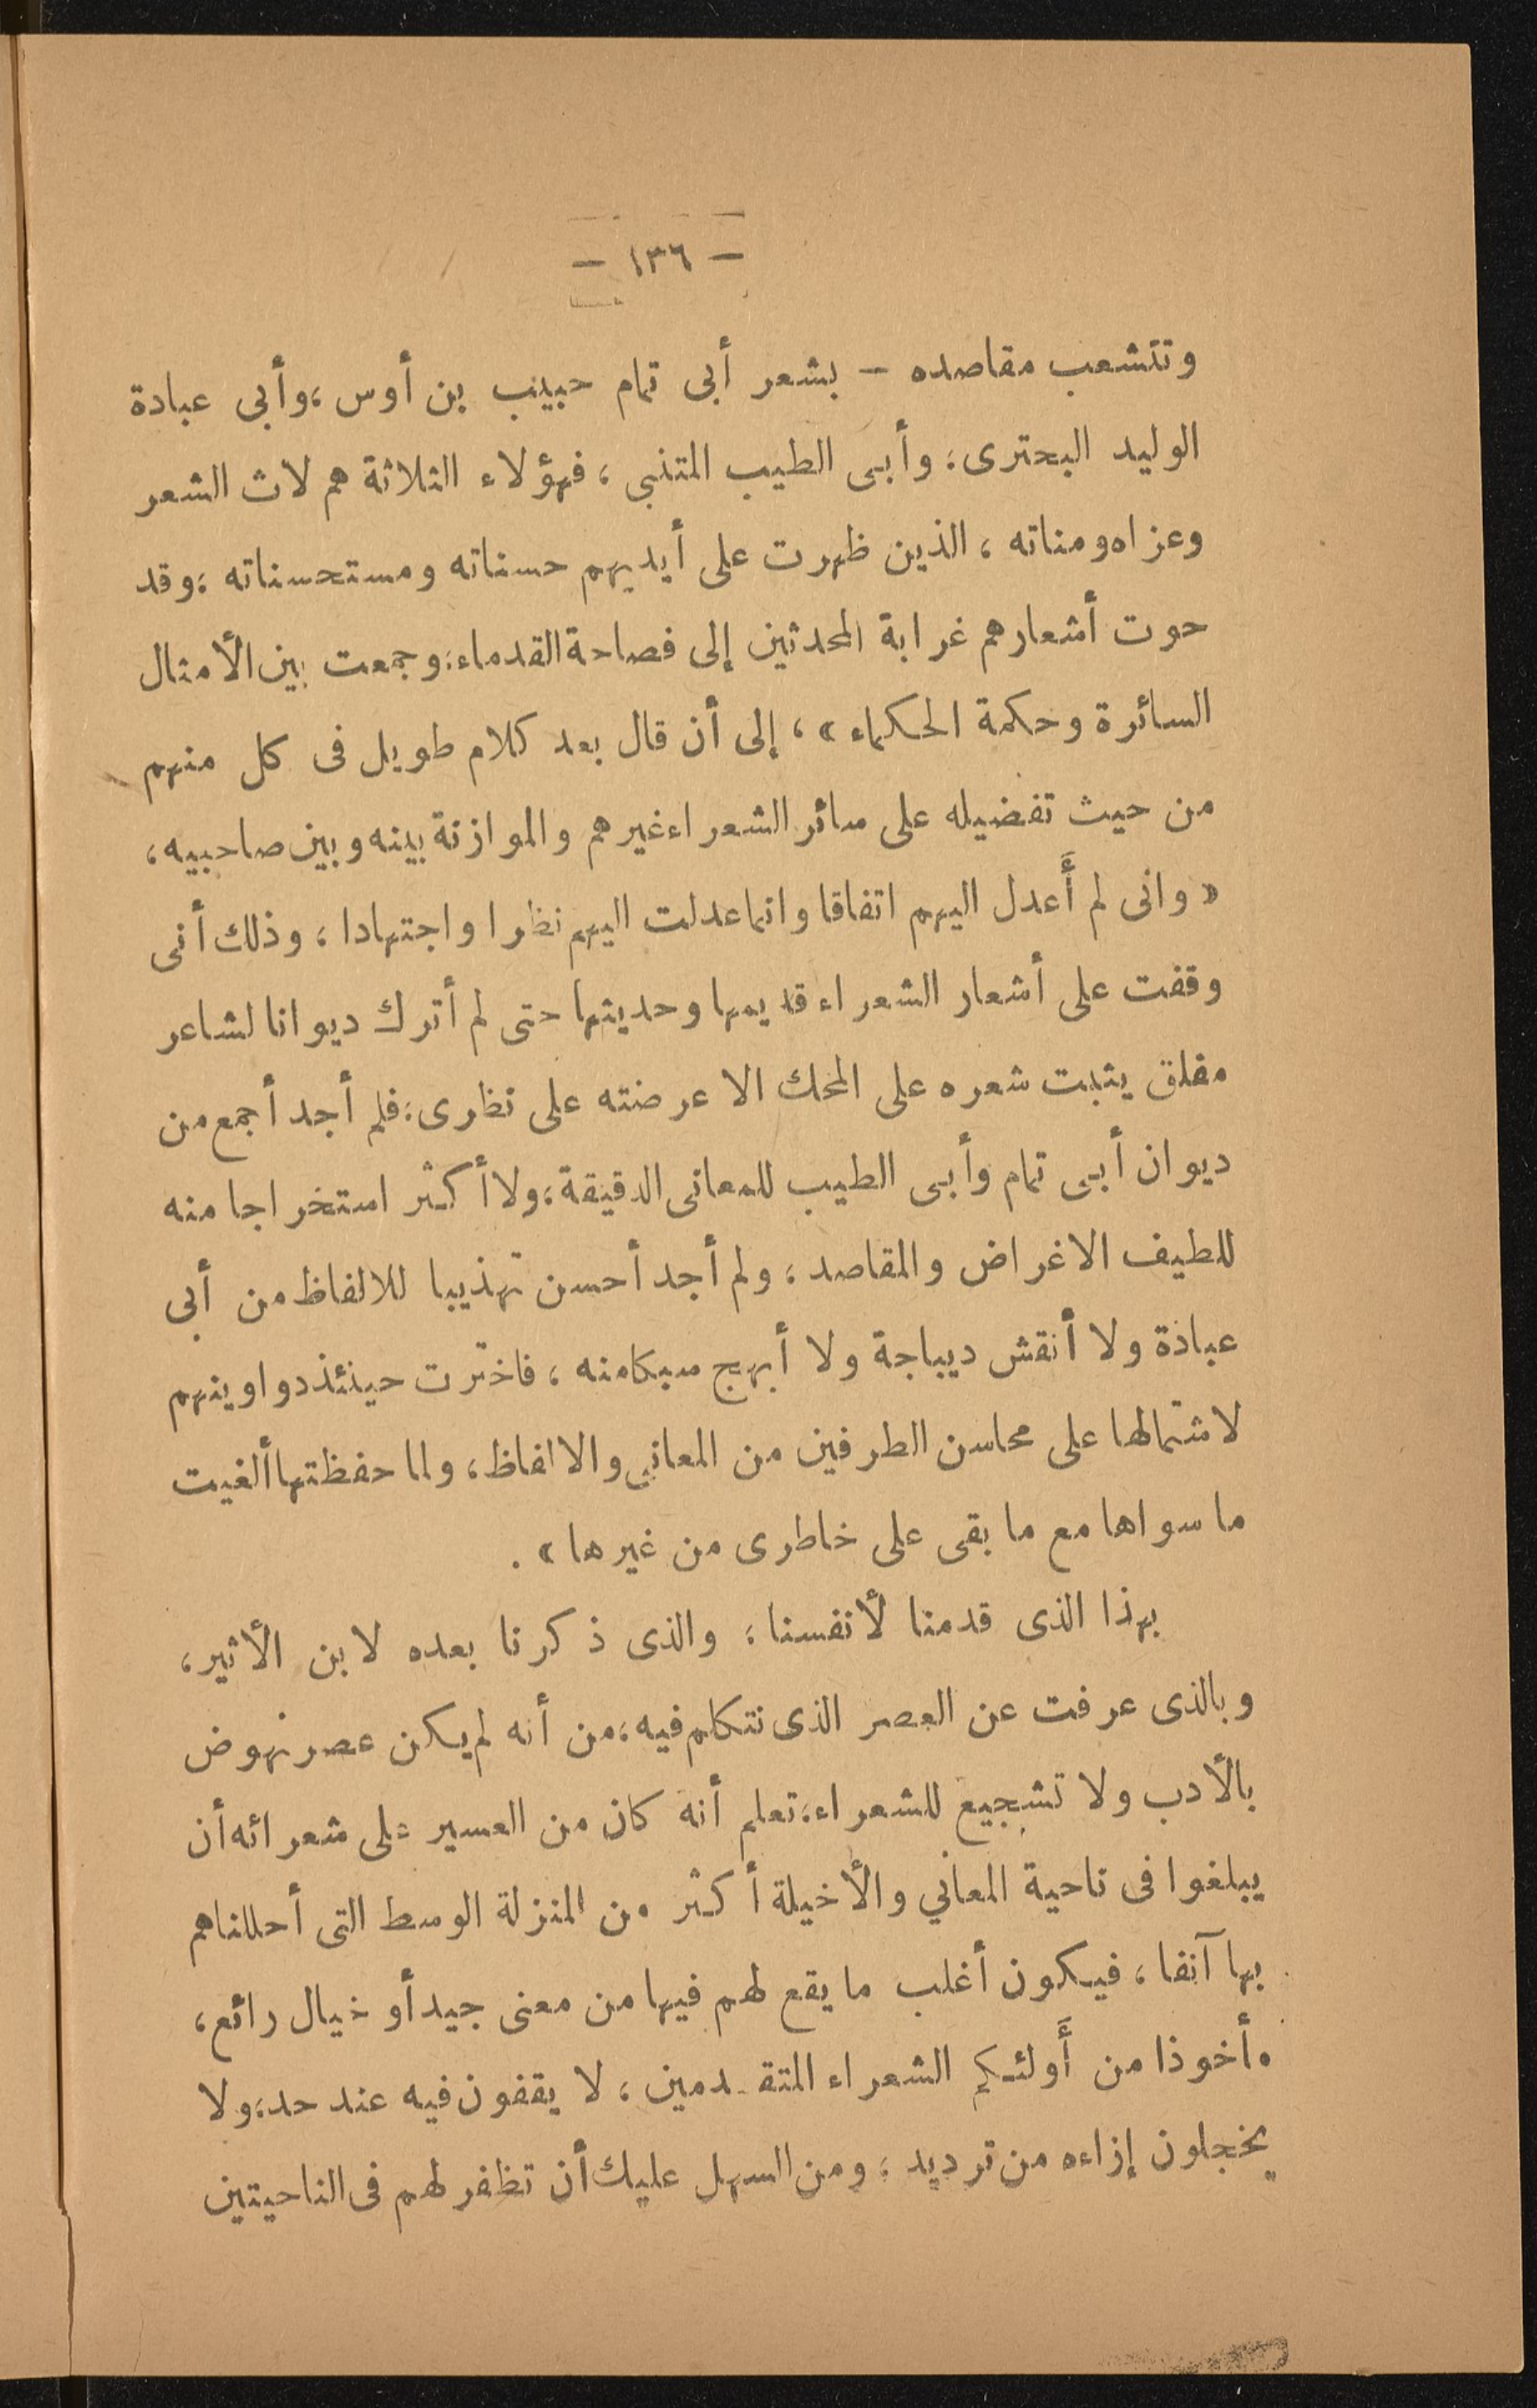 — ١٣٦ —
وتتشعب مقاصده — بشعر أبى تمام حبيب بن أوس، وأبى عبادة
الوليد البحترى، وأبى الطيب المتنبى، فهؤلاء الثلاثة هم لات الشعر
وعزاه ومناته، الذين ظهرت على أيديهم حسناته ومستحسناته، وقد
حوت أشعارهم غرابة المحدثين إلى فصاحة القدماء، وجمعت بين الأمثال
السائرة وحكمة الحكماء»، إلى أن قال بعد كلام طويل فى كل منهم
من حيث تفضيله على سائر الشعراء غيرهم والموازنة بينه وبين صاحبيه،
«وانى لم أَعدل اليهم اتفاقا وانما عدلت اليهم نظرا واجتهادا، وذلك أنى
وقفت على أشعار الشعراء قديمها وحديثها حتى لم أترك ديوانا لشاعر
مفلق يثبت شعره على المحك الا عرضته على نظرى، فلم أجد أجمع من
ديوان أبى تمام وأبى الطيب للمعانى الدقيقة، ولا أكثر استخراجا منه
للطيف الاغراض والمقاصد، ولم أجد أحسن تهذيبا للالفاظ من أبى
عبادة ولا أنقش ديباجة ولا أبهج سبكا منه، فاخترت حينئذ دواوينهم
لاشتمالها على محاسن الطرفين من المعانى والالفاظ، ولما حفظتها ألغيت
ما سواها مع ما بقى على خاطرى من غيرها».
بهذا الذى قدمنا لأنفسنا، والذى ذكرنا بعده لابن الأثير،
وبالذى عرفت عن العصر الذى نتكلم فيه، من أنه لم يكن عصر نهوض
بالأدب ولا تشجيع للشعراء، تعلم أنه كان من العسير على شعرائه أن
يبلغوا فى ناحية المعاني والأخيلة أكثر من المنزلة الوسط التى أحللناهم
بها آنفا، فيكون أغلب ما يقع لهم فيها من معنى جيد أو خيال رائع،
مأخوذا من أَولئكم الشعراء المتقدمين، لا يقفون فيه عند حد، ولا
يخجلون إزاءه من ترديد، ومن السهل عليك أن تظفر لهم فى الناحيتين